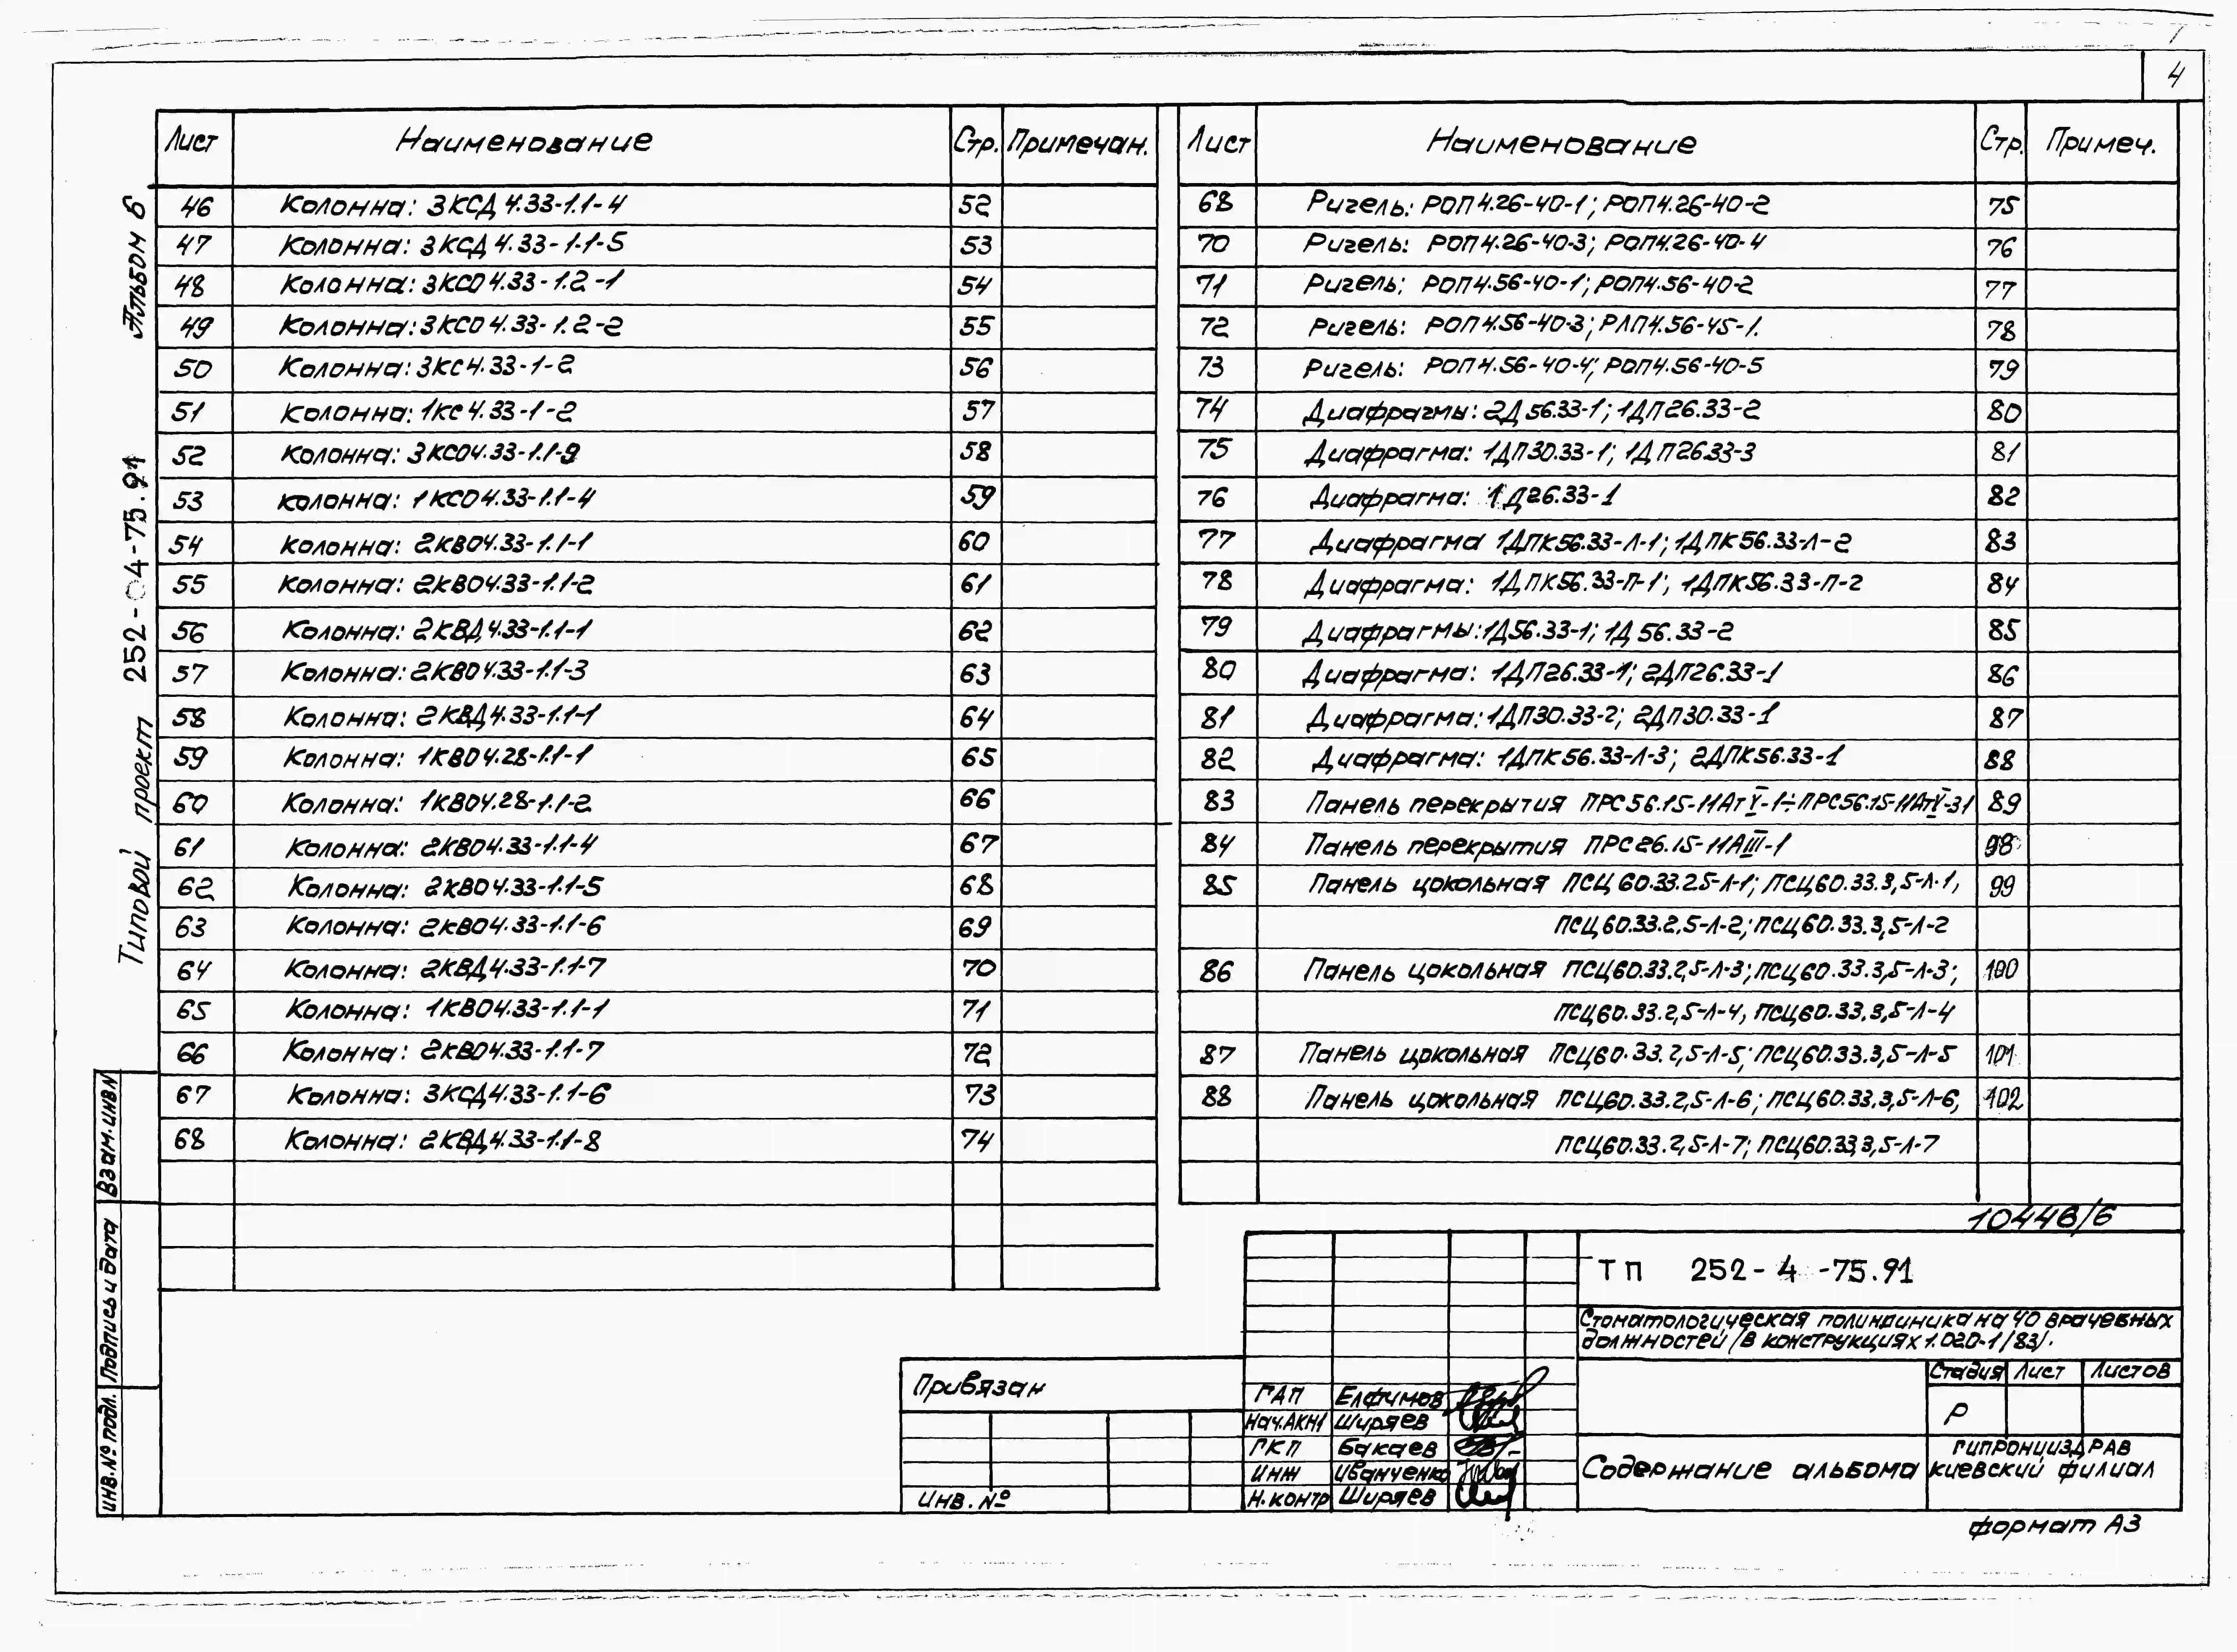 4
Лист Наименование Стр. Примечан.
46 Колонна: 3КСД 4.33-1.1-4 52
47 Колонна: 3КСД 4.33-1.1-5 53
48 Колонна: 3КСО 4.33-1.2-1 54
49 Колонна: 3КСО 4.33-1.2-2 55
50 Колонна: 3КС 4.33-1-2 56
51 Колонна: 1КС 4.33-1-2 57
52 Колонна: 3КСО4.33-1.1-9 58
53 Колонна: 1КСО 4.33-1.1-4 59
54 Колонна: 2КВО4.33-1.1-1 60
55 Колонна: 2КВО4.33-1.1-2 61
56 Колонна: 2КВД 4.33-1.1-1 62
57 Колонна: 2КВО 4.33-1.1-3 63
58 Колонна: 2КВД 4.33-1.1-1 64
59 Колонна: 1КВО 4.28-1.1-1 65
60 Колонна: 1КВО4.28-1.1-2 66
61 Колонна: 2КВО4.33-1.1-4 67
62 Колонна: 2КВО4.33-1.1-5 68
63 Колонна: 2КВО4.33-1.1-6 69
64 Колонна: 2КВД4.33-1.1-7 70
65 Колонна: 1КВО4.33-1.1-1 71
66 Колонна: 2КВО4.33-1.1-7 72
67 Колонна: 3КСД4.33-1.1-6 73
68 Колонна: 2КВД4.33-1.1-8 74
Лист Наименование Стр. Примеч.
68 Ригель: РОП 4.26-40-1; РОП4.26-40-2 75
70 Ригель: РОП 4.26-40-3; РОП4.26-40-4 76
71 Ригель: РОП4.56-40-1; РОП4.56-40-2 77
72 Ригель: РОП4.56-40-3; РЛП4.56-45-1. 78
73 Ригель: РОП4.56-40-4; РОП4.56-40-5 79
74 Диафрагмы: 2Д 56.33-1; 1ДП26.33-2 80
75 Диафрагма: 1ДП30.33-1; 1ДП26.33-3 81
76 Диафрагма: 1Д26.33-1 82
77 Диафрагма 1ДПК56.33-Л-1; 1ДПК56.33-Л-2 83
78 Диафрагма: 1ДПК56.33-П-1; 1ДПК56.33-П-2 84
79 Диафрагмы: 1Д56.33-1; 1Д 56.33-2 85
80 Диафрагма: 1ДП26.33-1; 2ДП26.33-1 86
81 Диафрагма: 1ДП30.33-2; 2ДП30.33-1 87
82 Диафрагма: 1ДПК56.33-Л-3; 2ДПК56.33-1 88
83 Панель перекрытия ПРС56.15-11АтV-1÷ПРС56.15-11АтV-31 89
84 Панель перекрытия ПРС26.15-11АIII-1 98
85 Панель цокольная ПСЦ 60.33.2.5-Л-1; ПСЦ60.33.3,5-Л-1, 99
ПСЦ60.33.2,5-Л-2; ПСЦ60.33.3,5-Л-2
86 Панель цокольная ПСЦ60.33.2,5-Л-3; ПСЦ60.33.3,5-Л-3; 100
ПСЦ60.33.2,5-Л-4, ПСЦ60.33.3,5-Л-4
87 Панель цокольная ПСЦ60.33.2,5-Л-5; ПСЦ60.33.3,5-Л-5 101
88 Панель цокольная ПСЦ60.33.2,5-Л-6; ПСЦ60.33.3,5-Л-6, 102
ПСЦ60.33.2,5-Л-7; ПСЦ60.33.3,5-Л-7
10446/6
ТП 252-4-75.91
Стоматологическая поликлиника на 40 врачебных
должностей /в конструкциях 1.020-1/83/.
Стадия Лист Листов
Р
Содержание альбома
ГИПРОНИИЗДРАВ
Киевский филиал
ГАП Елфимов
Нач.АКН1 Ширяев
ГКП Бакаев
Инж Иванченко
Н.контр Ширяев
Привязан
Инв.№
Формат А3
Типовой проект 252-04-75.91 Альбом 6
Взам.инв№
Подпись и дата
Инв.№ подл.